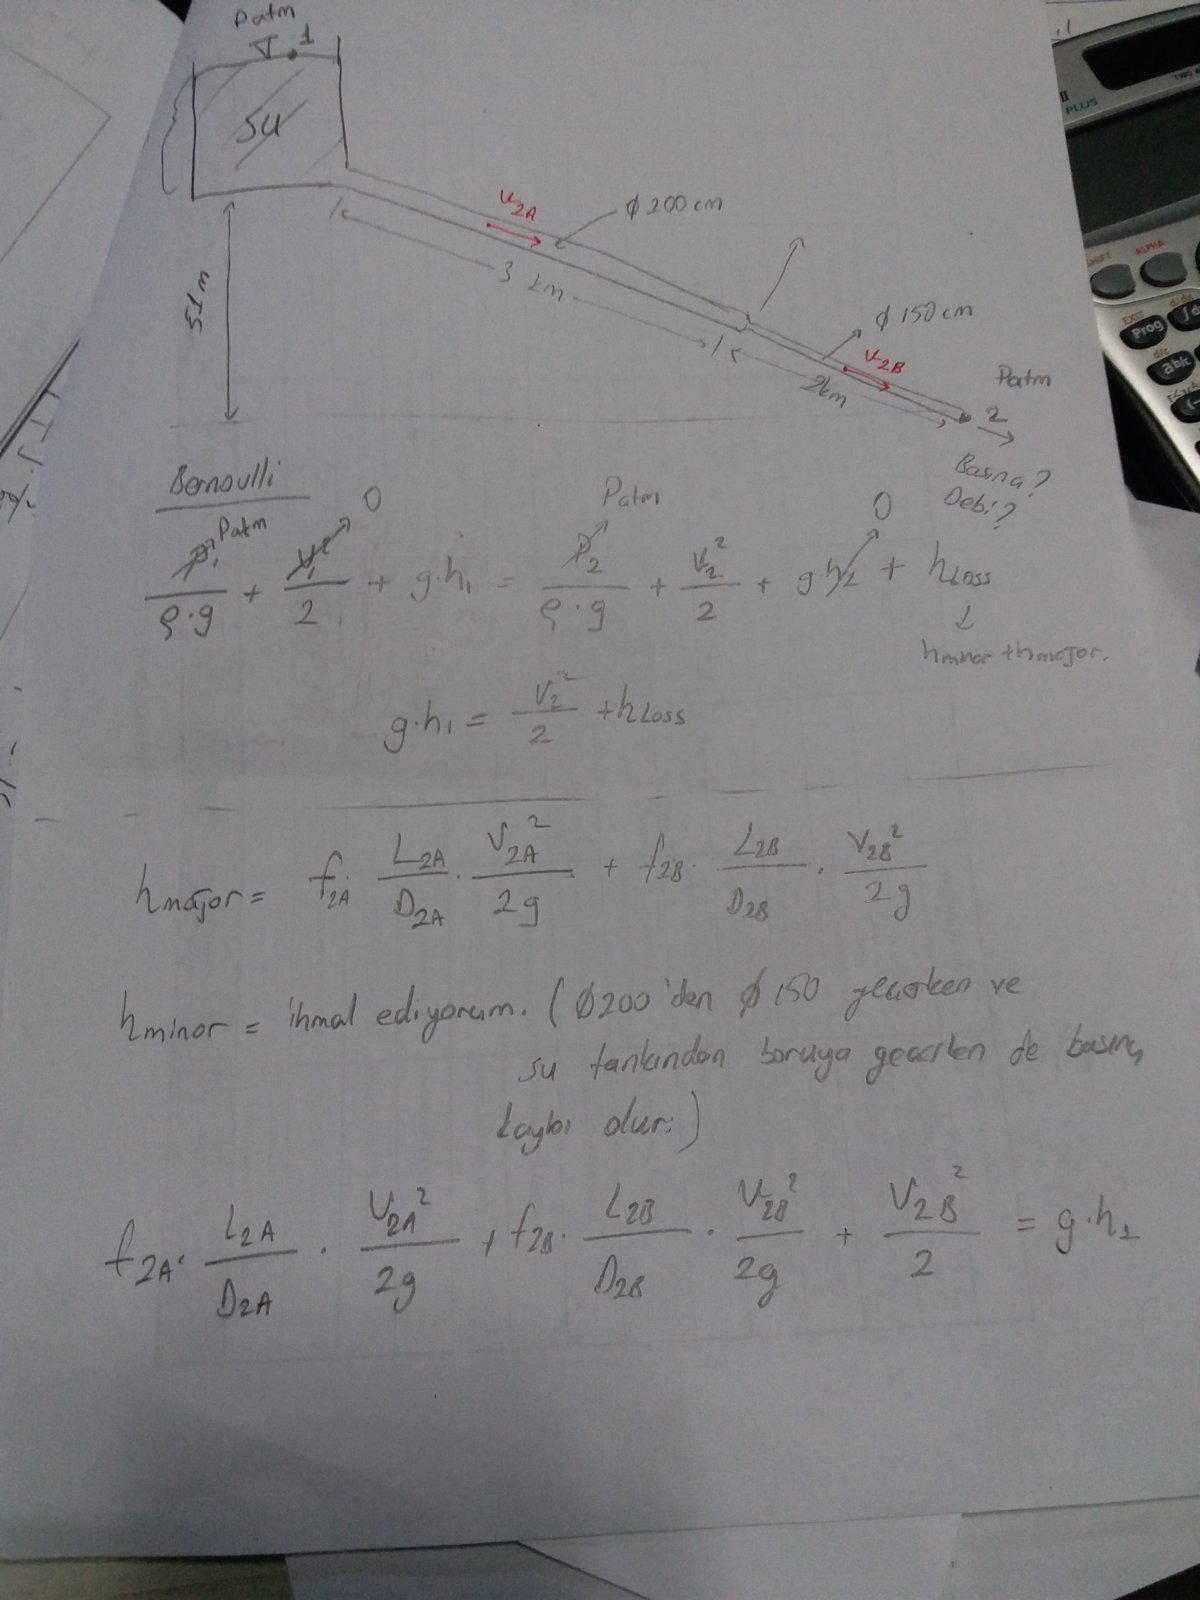 Patm
1
Su
51m
V2A
ϕ200cm
3 km
ϕ150cm
V2B
2km
Patm
2
Basınç?
Debi?
PLUS
SHIFT
ALPHA
EXIT
Prog
d/c
ab/c
Bernoulli
Patm 0 Patm 0
P1/ρ·g + V1²/2 + g·h1 = P2/ρ·g + V2²/2 + g h2 + hLoss
hminor + hmajor.
g·h1 = V2²/2 + hLoss
hmajor = f2A · L2A/D2A · V2A²/2g + f2B · L2B/D2B · V2B²/2g
hminor = ihmal ediyorum. (Ø200'den ϕ150 geçerken ve
su tankından boruya geçerken de basınç
kaybı olur.)
f2A · L2A/D2A · V2A²/2g + f2B · L2B/D2B · V2B²/2g + V2B²/2 = g·h1